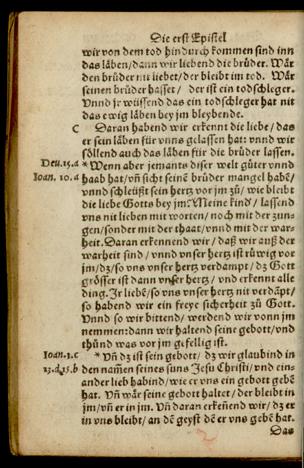 Die erst Epistel
wir von dem tod hindurch kommen sind inn
das läben/dann wir liebend die brüder. Wär
den brüder nit liebet/der bleibt im tod. Wär
seinen brüder hasset/ der ist ein todschleger.
Vnnd jr wüssend das ein todschleger hat nit
das ewig läben bey jm bleybende.
C Daran habend wir erkennt die liebe/das
er sein läben für vnns gelassen hat: vnnd wir
söllend auch das läben für die brüder lassen.
Deu.15.a *Wenn aber jemants diser welt güter vnnd
Ioan. 10.a haab hat/vn̄ sicht seinē brüder mangel habē/
vnnd schleüßt sein hertz vor jm zů/wie bleibt
die liebe Gotts bey jm? Meine kind/ lassend
vns nit lieben mit worten/noch mit der zun-
gen/sonder mit der thaat/vnnd mit der war-
heit. Daran erkennend wir/ daß wir auß der
warheit sind/ vnnd vnser hertz ist růwig vor
jm/dz/so vns vnser hertz verdampt/dz Gott
grösser ist dann vnser hertz/ vnd erkennt alle
ding. Jr liebē/so vns vnser hertz nit verdāpt/
so habend wir ein freye sicherheit zů Gott.
Vnnd so wir bittend/ werdend wir vonn jm
nemmen:dann wir haltend seine gebott/vnd
thůnd was vor jm gefellig ist.
Ioan.1.c *Vn̄ dz ist sein gebott/ dz wir glaubind in
13.d.15.b den nam̄en seines suns Jesu Christi/vnd ein-
ander lieb habind/wie er vns ein gebott gebē
hat. Vn̄ wär seine gebott haltet/der bleibt in
jm/vn̄ er in jm. Vn̄ daran erkēnend wir/dz er
in vns bleibt/ an dē geyst dē er vns gebē hat.
Das